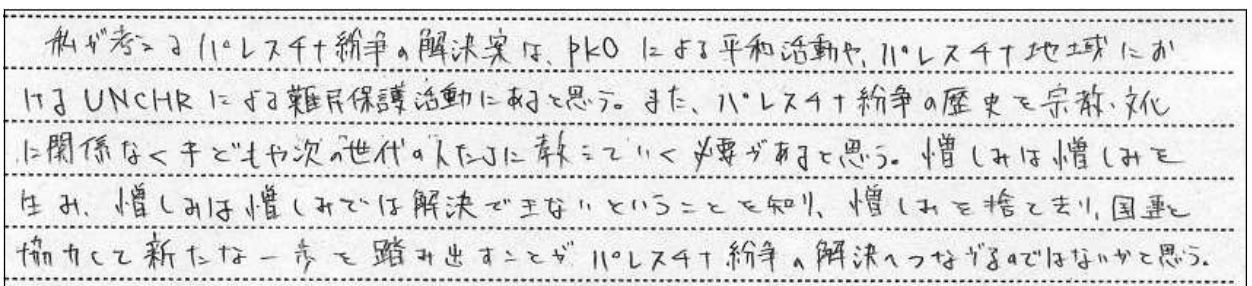 私が考えるパレスチナ紛争の解決案は、PKOによる平和活動や、パレスチナ地域にお
けるUNCHRによる難民保護活動にあると思う。また、パレスチナ紛争の歴史を宗教・文化
に関係なく子どもや次の世代の人たちに教えていく必要があると思う。憎しみは憎しみを
生み、憎しみは憎しみでは解決できないということを知り、憎しみを捨て去り、国連と
協力して新たな一歩を踏み出すことがパレスチナ紛争の解決へつながるのではないかと思う。